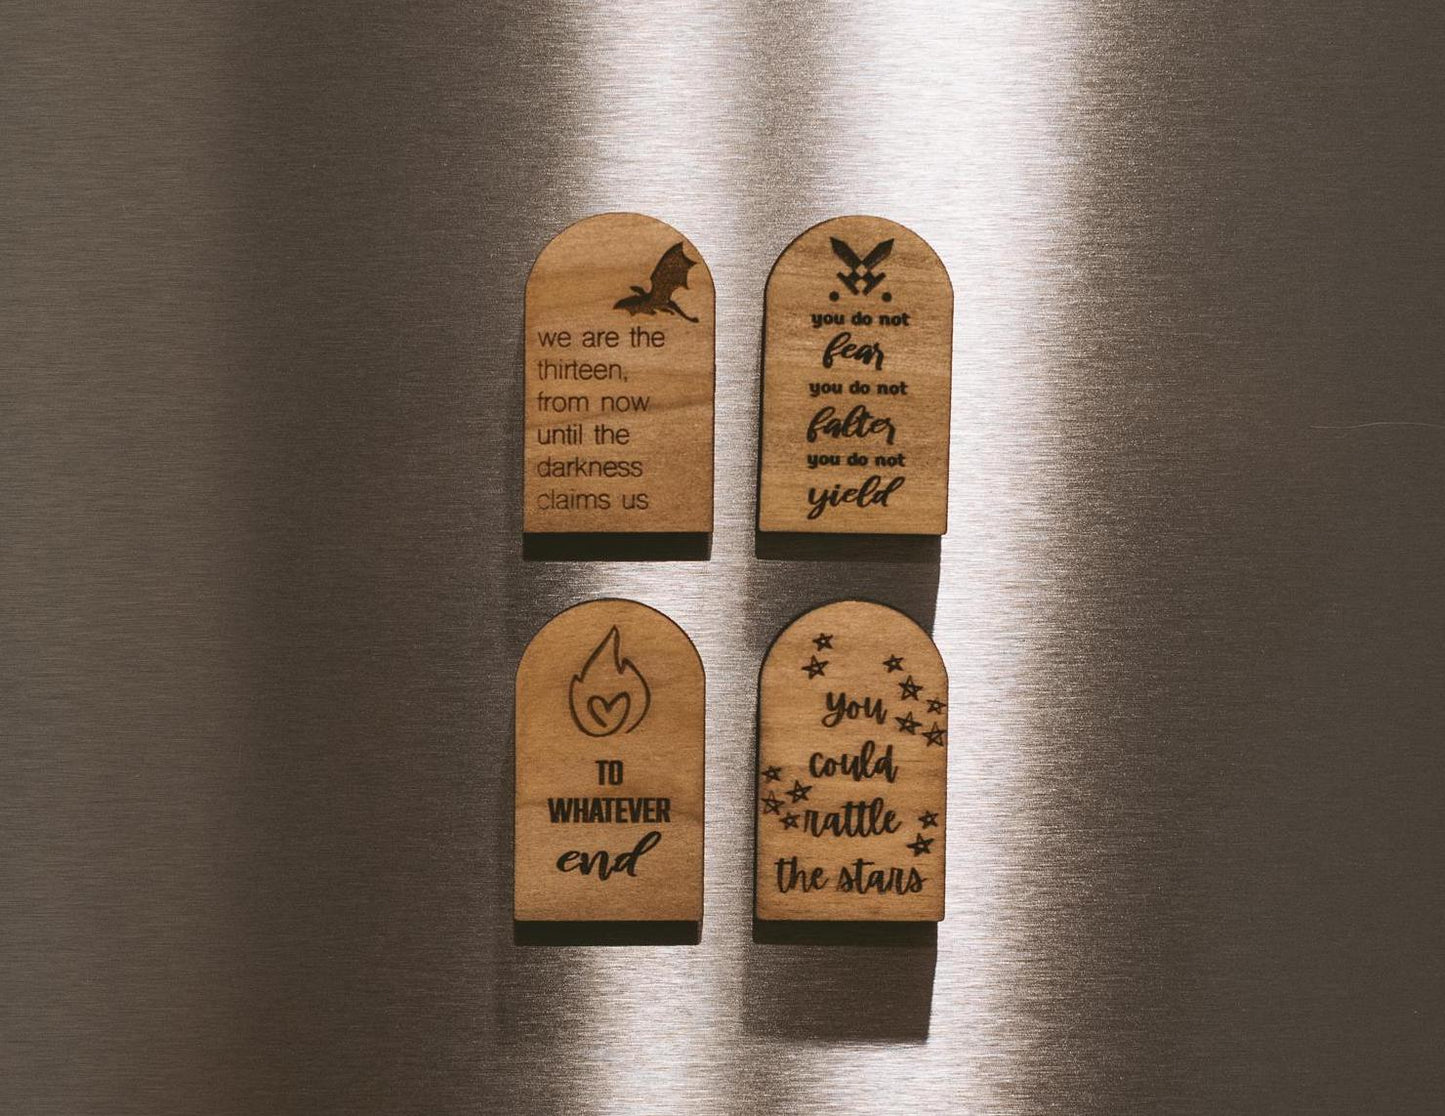 we are the
thirteen,
from now
until the
darkness
claims us
you do not
fear
you do not
falter
you do not
yield
TO
WHATEVER
end
you
could
rattle
the stars